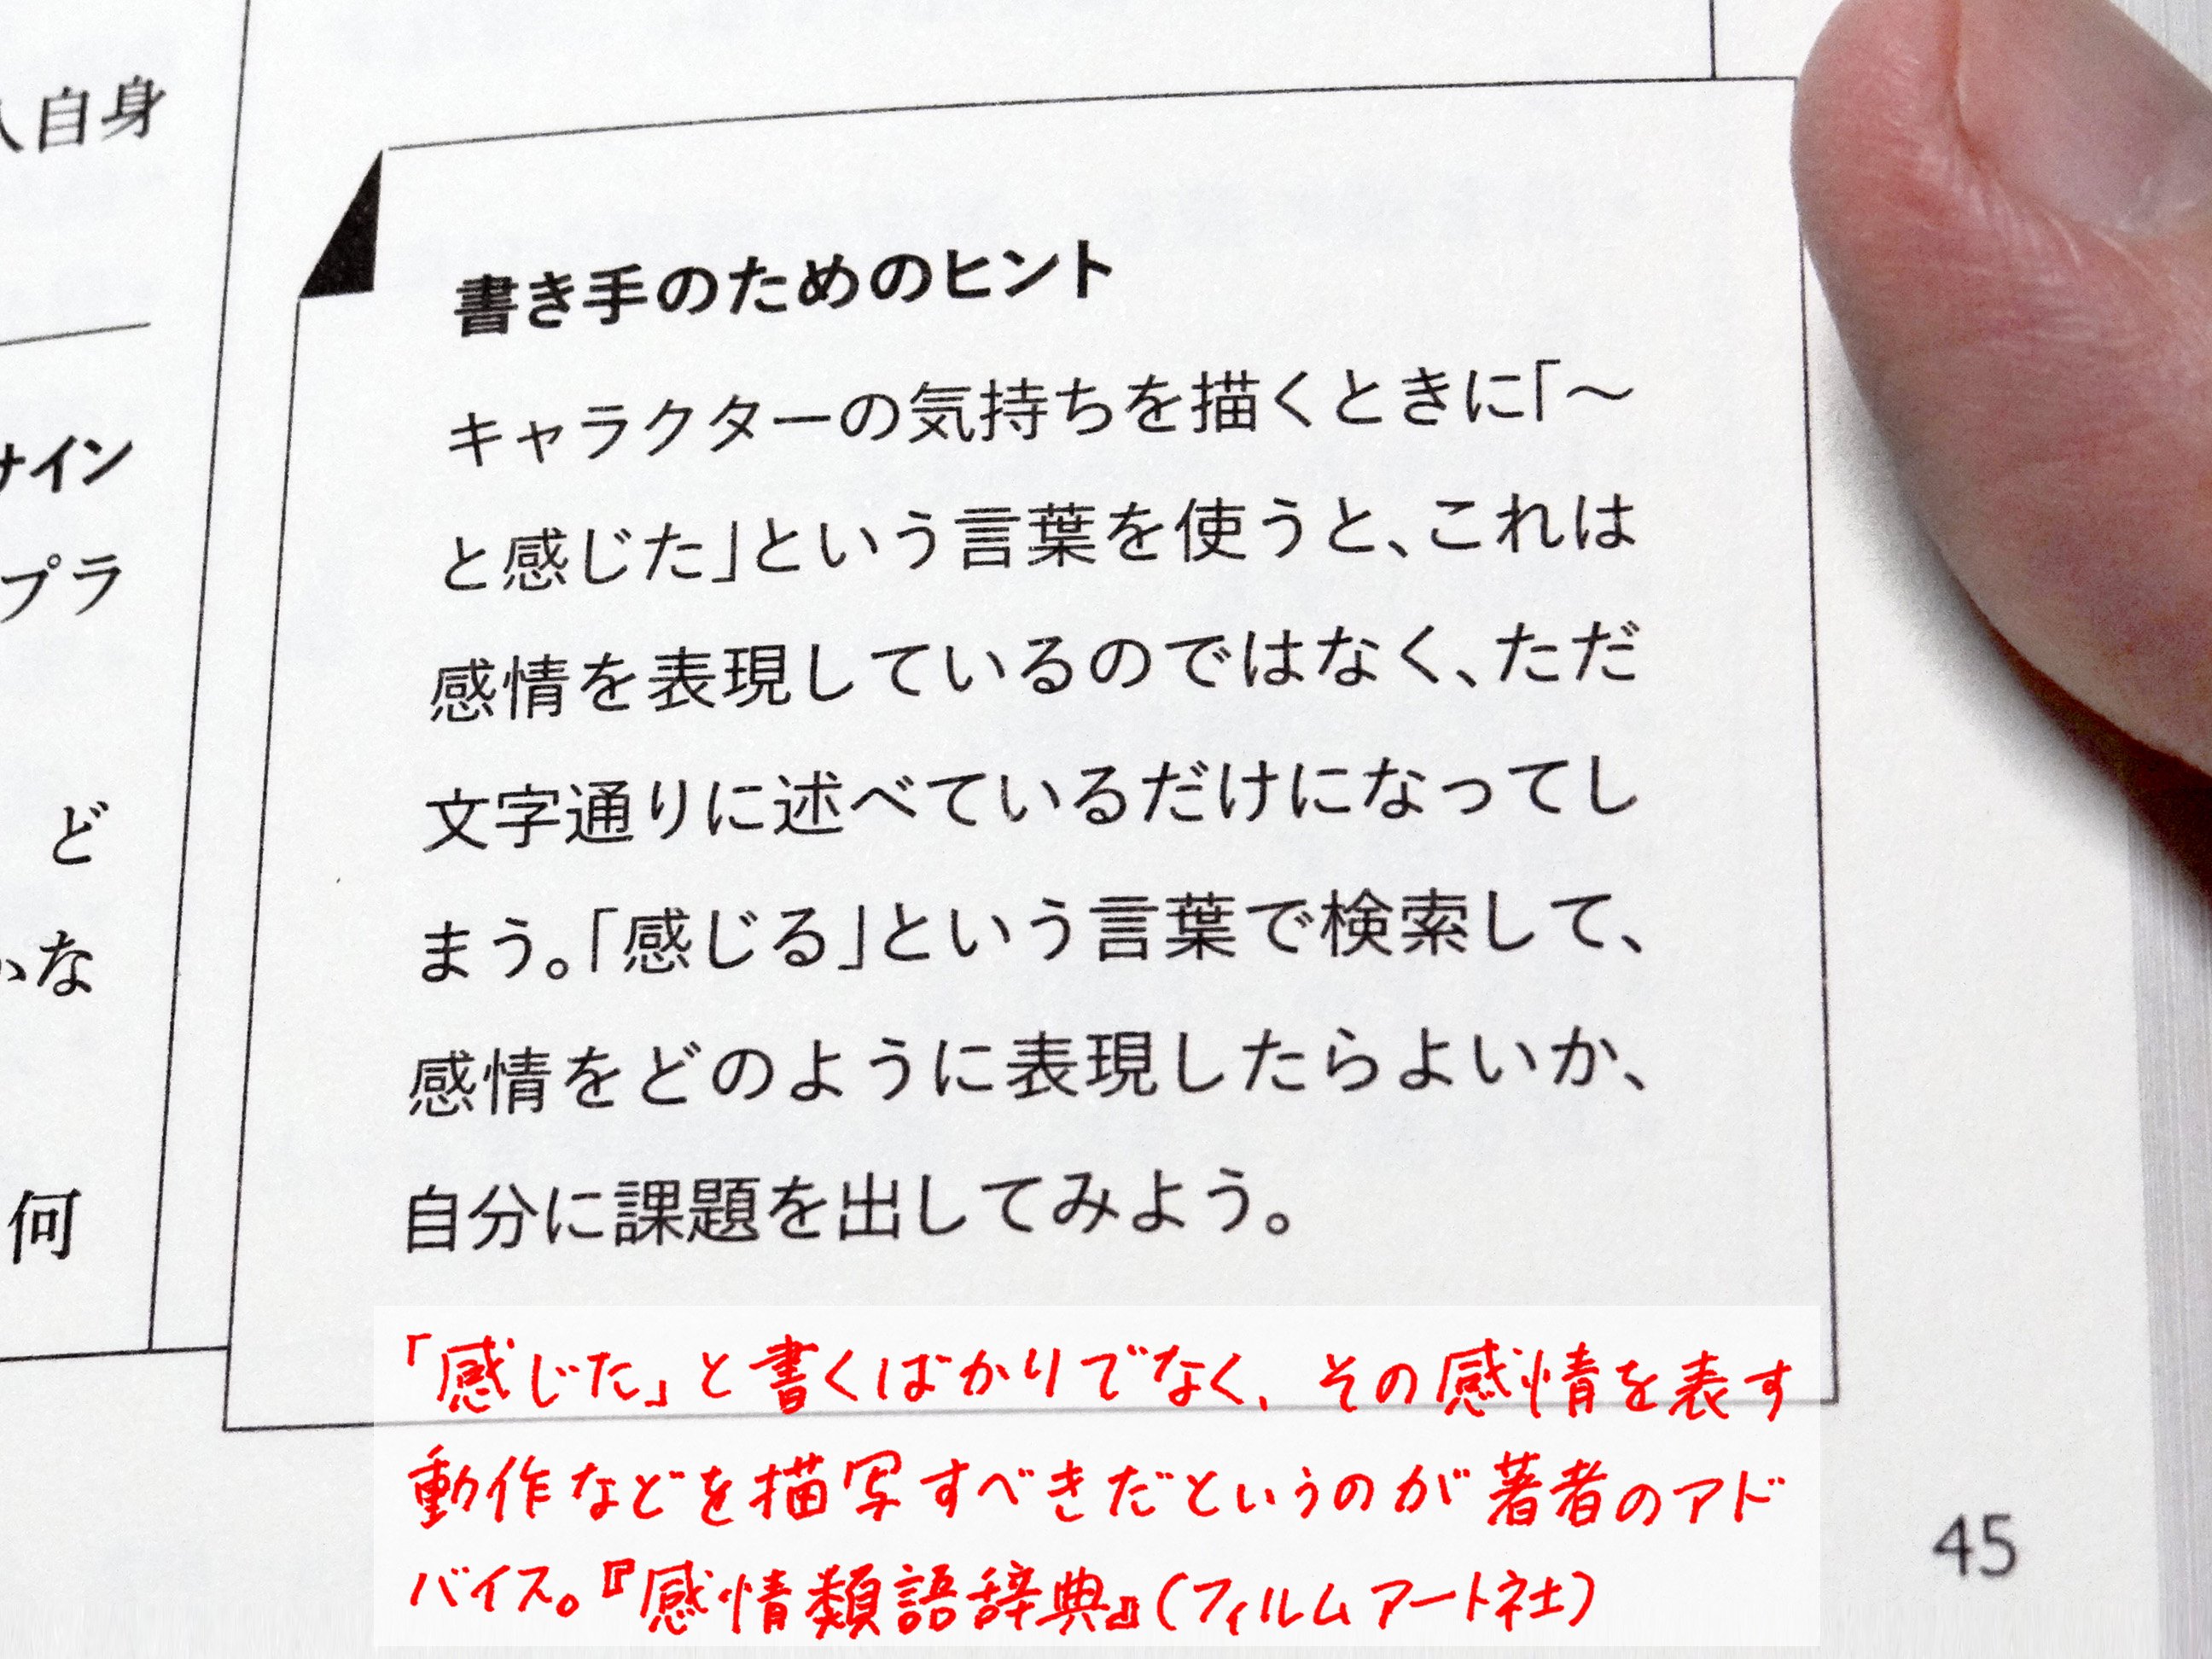 人自身
サイン
プラ
ど
いな
何
書き手のためのヒント
キャラクターの気持ちを描くときに「～
と感じた」という言葉を使うと、これは
感情を表現しているのではなく、ただ
文字通りに述べているだけになってし
まう。「感じる」という言葉で検索して、
感情をどのように表現したらよいか、
自分に課題を出してみよう。
「感じた」と書くばかりでなく、その感情を表す
動作などを描写すべきだというのが著者のアド
バイス。『感情類語辞典』（フィルムアート社）
45